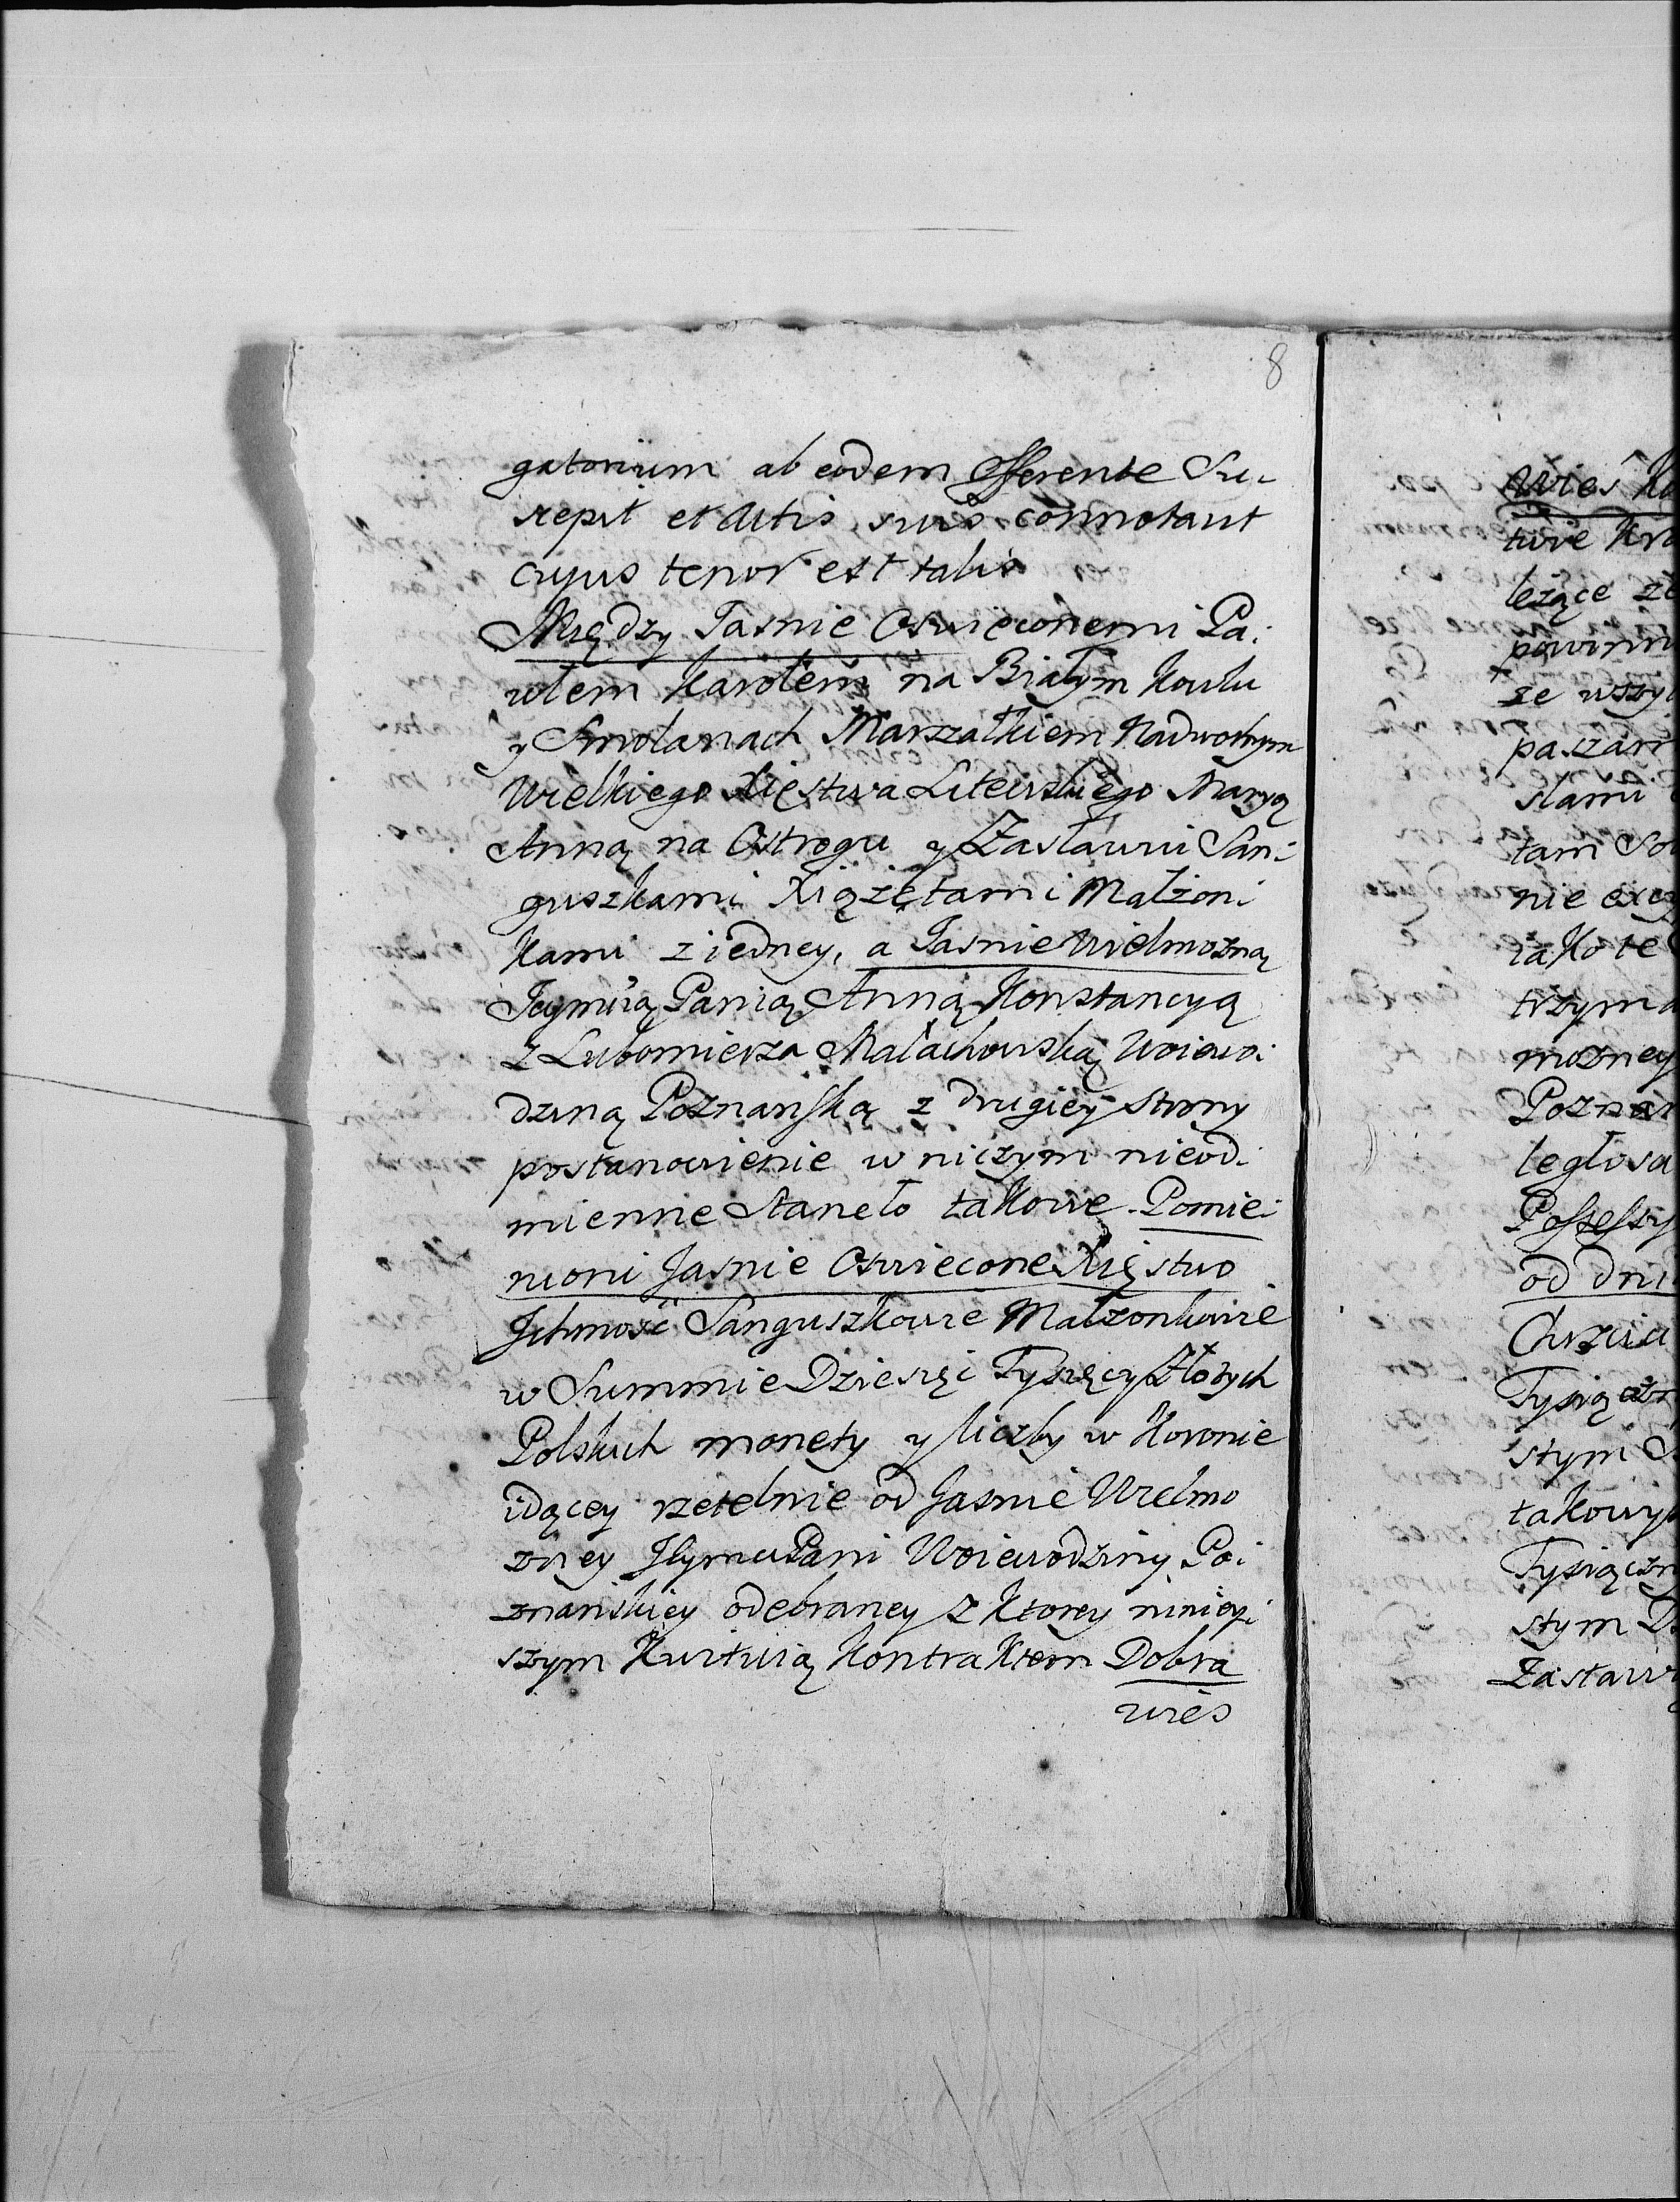 8
gatorium ab eodem Offerente Su-
scepit et Actis suis connotavit
cujus tenor est talis
Między Jasnie Oswieconemi Pa-
włem Karolem na Białym Kowlu
y Smolanach Marszałkiem Nadwornym
Wielkiego Xięstwa Litewskiego Maryą
Anną na Ostrogu y Zasławiu San-
guszkami Xiążętami Małżon-
kami z iedney, a Jasnie Wielmożną
Jeymścią Panią Anną Konstancyą
z Lubomierza Małachowską Woiewo-
dziną Poznańską z drugiey Strony
postanowienie w niczym nieod-
mienne Staneło takowe. Pomie-
nioni Jasnie Oswiecone Xięstwo
Ichmość Sanguszkowie Małżonkowie
w Summie Dziesięć Tysięcy Złotych
Polskich monety y liczby w Koronie
idącey rzetelnie od Jasnie Wielmo
żney Pani Woiewodziny Po-
znańskiey odebraney z Ktorey niniey-
szym Kwituią Kontraktem Dobra
wieś
wieś
leżące
powinn
ze wszy
tam
nie
iako te
trzym
możney
Pozna
ległos
Possessy
od dni
Tysiącz
stym
takowy
Tysiączn
stym
Zastaw